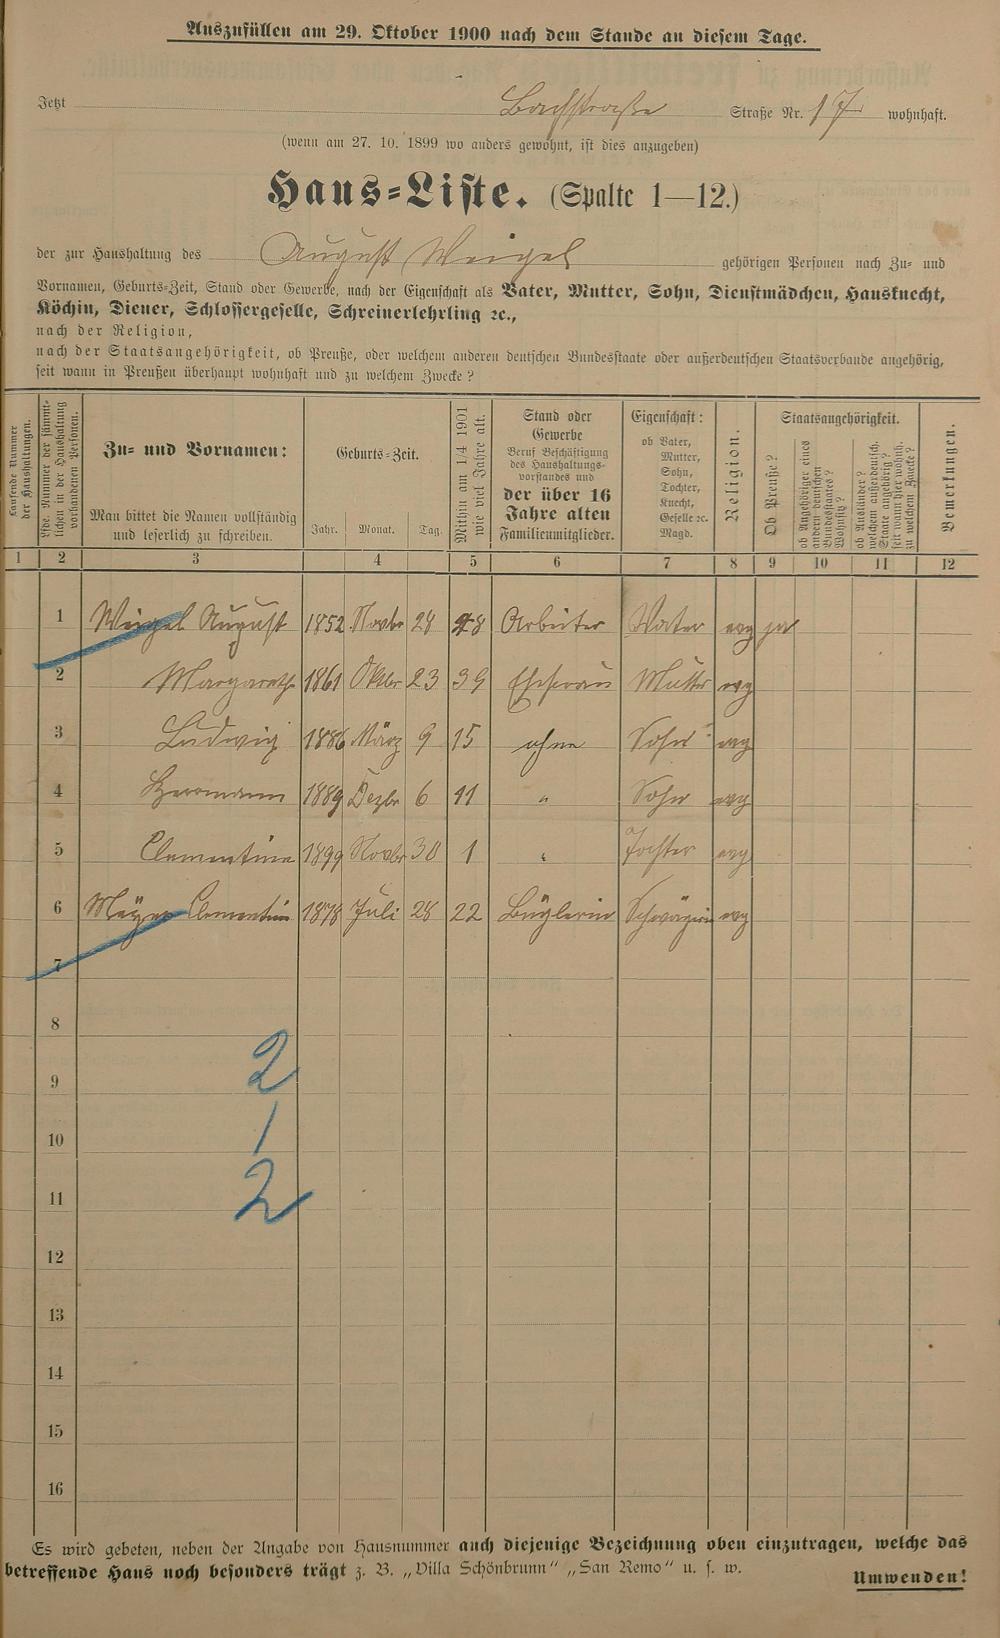 Auszufüllen am 29. Oktober 1900 nach dem Stande an diesem Tage.
Jetzt Bachstraße Straße Nr. 17 wohnhaft.
(wenn am 27. 10. 1899 wo anders gewohnt, ist dies anzugeben)
Haus=Liste. (Spalte 1—12.)
der zur Haushaltung des August Weigel gehörigen Personen nach Zu= und
Vornamen, Geburts=Zeit, Stand oder Gewerbe, nach der Eigenschaft als Vater, Mutter, Sohn, Dienstmädchen, Hausknecht,
Köchin, Diener, Schlossergeselle, Schreinerlehrling ꝛc.,
nach der Religion,
nach der Staatsangehörigkeit, ob Preuße, oder welchem anderen deutschen Bundesstaate oder außerdeutschen Staatsverbande angehörig,
seit wann in Preußen überhaupt wohnhaft und zu welchem Zwecke?
Laufende Nummer der Haushaltungen.
Lfde. Nummer der sämmtlichen in der Haushaltung vorhandenen Personen.
Zu= und Vornamen:
Man bittet die Namen vollständig
und leserlich zu schreiben.
Geburts=Zeit.
Jahr. Monat. Tag.
Mithin am 1/4 1901 wie viel Jahre alt.
Stand oder
Gewerbe
Beruf Beschäftigung
des Haushaltungs=
vorstandes und
der über 16
Jahre alten
Familienmitglieder.
Eigenschaft:
ob Vater,
Mutter,
Sohn,
Tochter,
Knecht,
Geselle ꝛc.
Magd.
Religion.
Staatsangehörigkeit.
Ob Preuße?
ob Angehöriger eines andern deutschen Bundesstaates? Wohnsitz?
ob Ausländer? welchem außerdeutsch. Staate angehörig? seit wann hier wohnh. zu welchem Zwecke?
Bemerkungen.
1 2 3 4 5 6 7 8 9 10 11 12
1 Weigel August 1852 Novbr 28 48 Arbeiter Vater evg ja
2 Margareth 1861 Oktbr 23 39 Ehefrau Mutter evg
3 Ludwig 1886 März 9 15 ohne Sohn evg
4 Hermann 1889 Dezbr 6 11 " Sohn evg
5 Clementine 1899 Novbr 30 1 " Tochter evg
6 Meyer Clementine 1878 Juli 28 22 Büglerin Schwägerin evg
7
8
9 2
10 1
11 2
12
13
14
15
16
Es wird gebeten, neben der Angabe von Hausnummer auch diejenige Bezeichnung oben einzutragen, welche das
betreffende Haus noch besonders trägt z. B. „Villa Schönbrunn“ „San Remo“ u. s. w.
Umwenden!